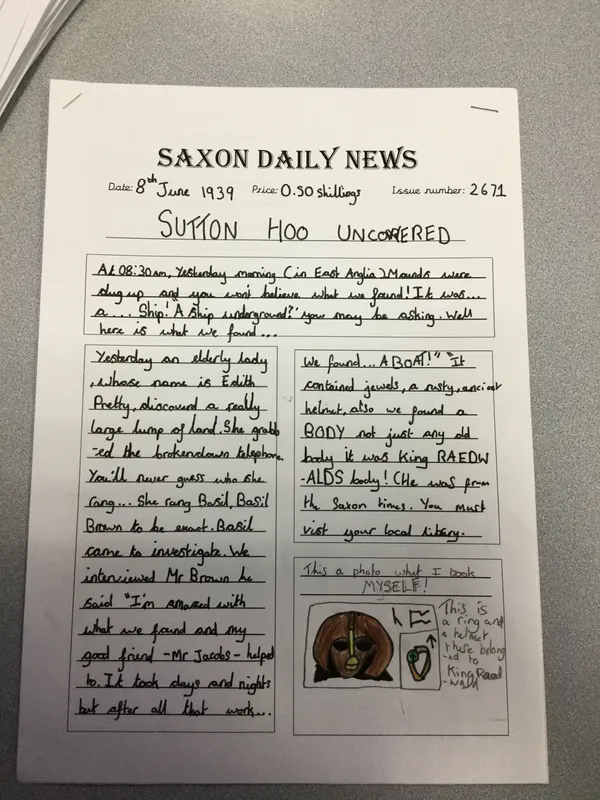 SAXON DAILY NEWS
Date: 8th June 1939 Price: 0.50 shillings Issue number: 2671
SUTTON HOO UNCOVERED
At 08:30am, Yesterday morning (in East Anglia) Mounds were
dug up and you won't believe what we found! It was...
a.... Ship! 'A ship underground?' you may be asking. Well
here is what we found...
Yesterday an elderly lady
, whose name is Edith
Pretty, discoverd a really
large lump of land. She grabb
-ed the brokendown telephone.
You'll never guess who she
rang... She rang Basil, Basil
Brown to be exact. Basil
came to investigate. We
interviewed Mr Brown he
said "I'm amazed with
what we found and my
good friend -Mr Jacobs- helped
to. It took days and nights
but after all that work...
We found... A BOAT!" "It
contained jewels, a rusty, ancient
helmet, also we found a
BODY not just any old
body it was King RAEDW
-ALDS body! (He was from
the Saxon times. You must
visit your local library.
This a photo what I took
MYSELF!
This is
a ring and
a helmet
these belong
-ed to
King Raed
-wald